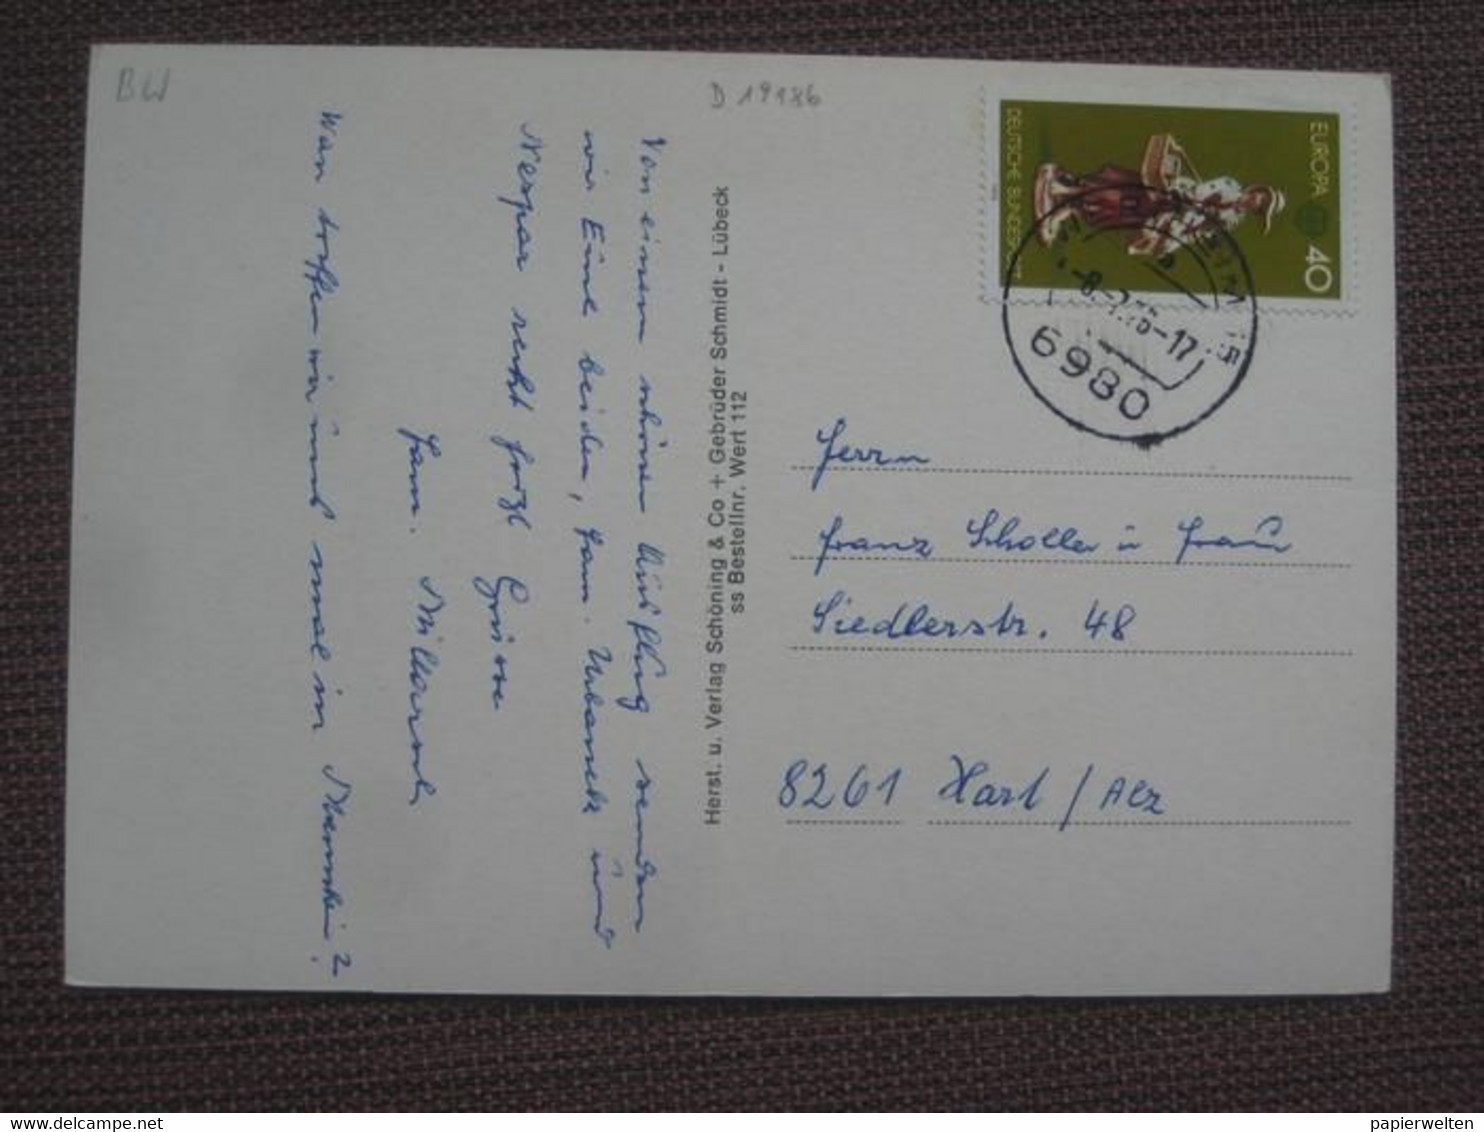 BW
D 19186
Von einem schönen Ausflug senden
wir Euch beiden, Fam. Urbanek und
Nespor recht herzl. Grüsse
Fam.
Wan treffen wir uns mal in
Herst. u. Verlag Schöning & Co + Gebrüder Schmidt - Lübeck
ss Bestellnr. Wert 112
EUROPA
40
DEUTSCHE BUNDESPOST
6980
Herrn
Franz Scholler u Frau
Siedlerstr. 48
8261 Hart / Alz
delcampe.net
papierwelten